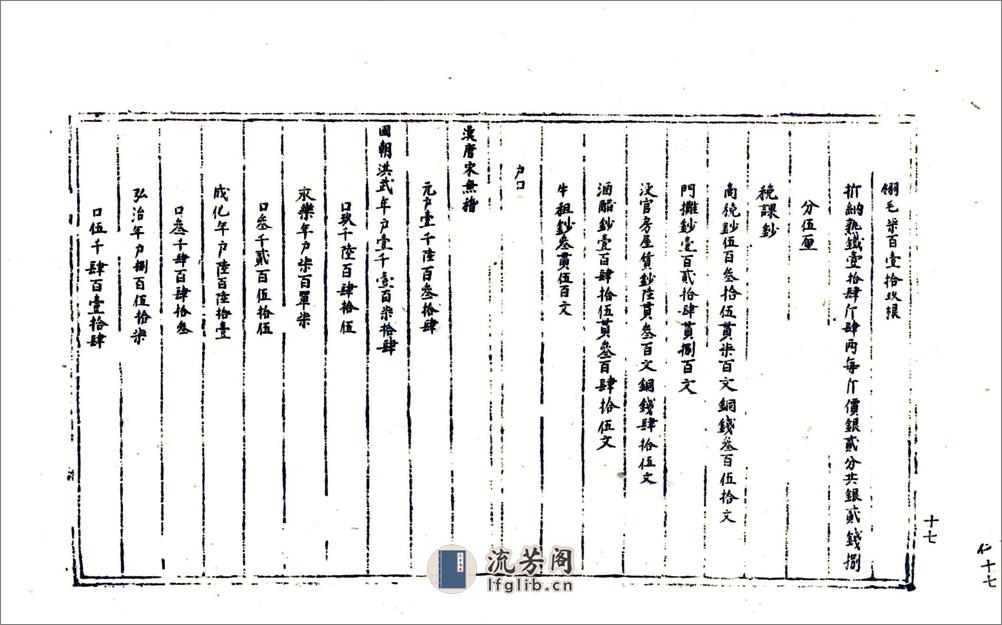 翎毛柒百壹拾玖根
折納熟鐵壹拾肆斤肆兩每斤價銀貳分共銀貳錢捌
分伍厘
稅課鈔
商稅鈔伍百叁拾伍貫柒百文銅錢叁百伍拾文
門攤鈔壹百貳拾肆貫捌百文
沒官房屋賃鈔陸貫叁百文銅錢肆拾伍文
酒醋鈔壹百肆拾伍貫叁百肆拾伍文
牛租鈔叁貫伍百文
户口
漢唐宋無稽
元户壹千陸百叁拾肆
國朝洪武年户壹千壹百柒拾肆
口玖千陸百肆拾伍
永樂年户柒百單柒
口叁千貳百伍拾伍
成化年户陸百陸拾壹
口叁千肆百肆拾叁
弘治年户捌百伍拾柒
口伍千肆百壹拾肆
十七
仁十七
流芳阁
lfglib.cn